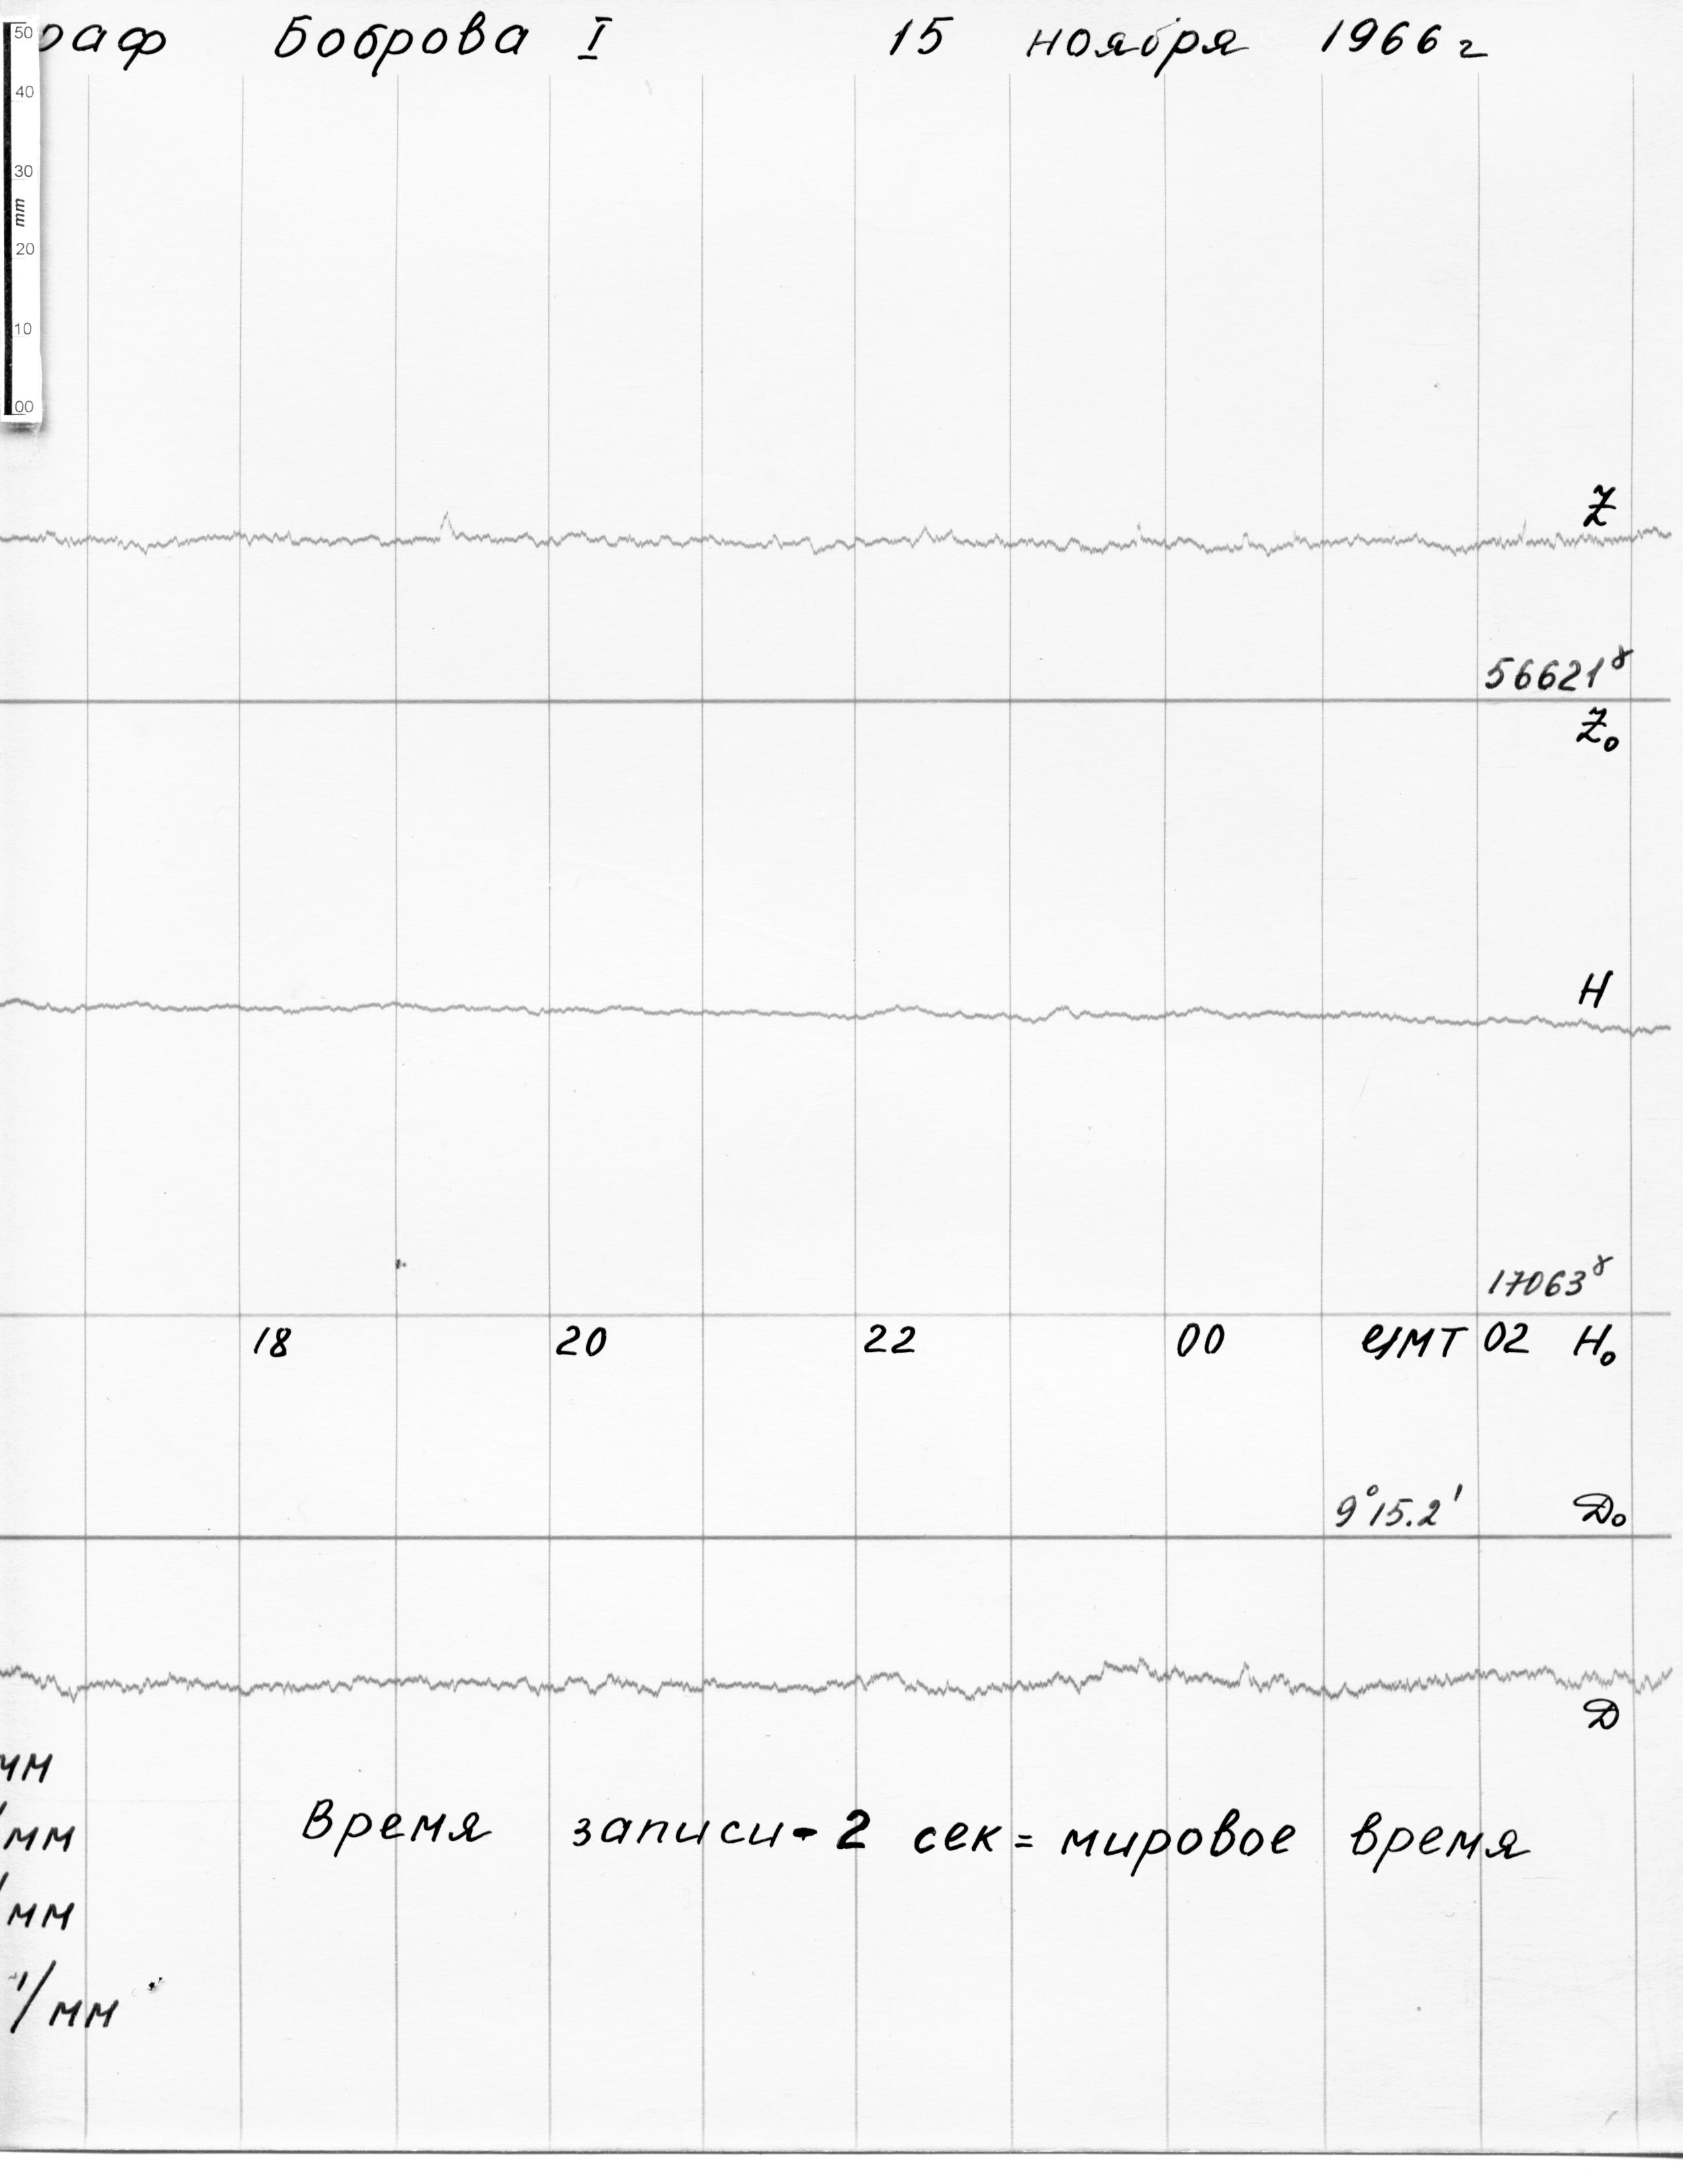 раф Боброва I 15 ноября 1966 г
50
40
30
mm
20
10
00
Z
56621γ
Z₀
H
17063γ
18 20 22 00 GMT 02 H₀
9°15.2' D₀
D
мм
/мм
/мм
'/мм
Время записи - 2 сек = мировое время